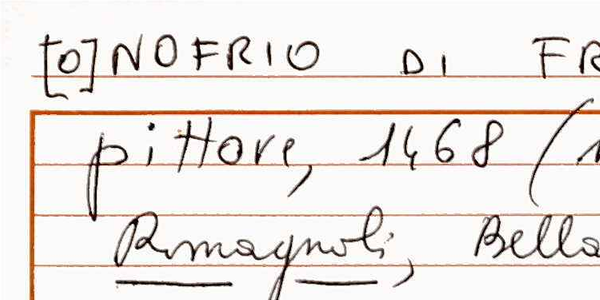 [O]NOFRIO DI FR
pittore, 1468 (
Romagnoli, Bella